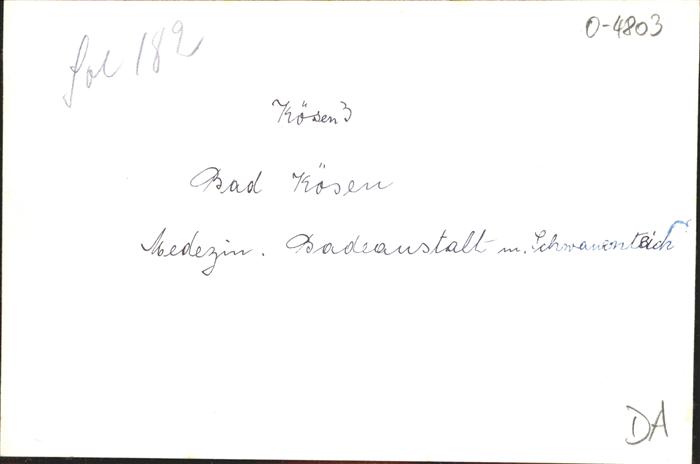 O-4803
fol 182
Kösen 3
Bad Kösen
Medezin. Badeanstalt m. Schwanenteich
DA